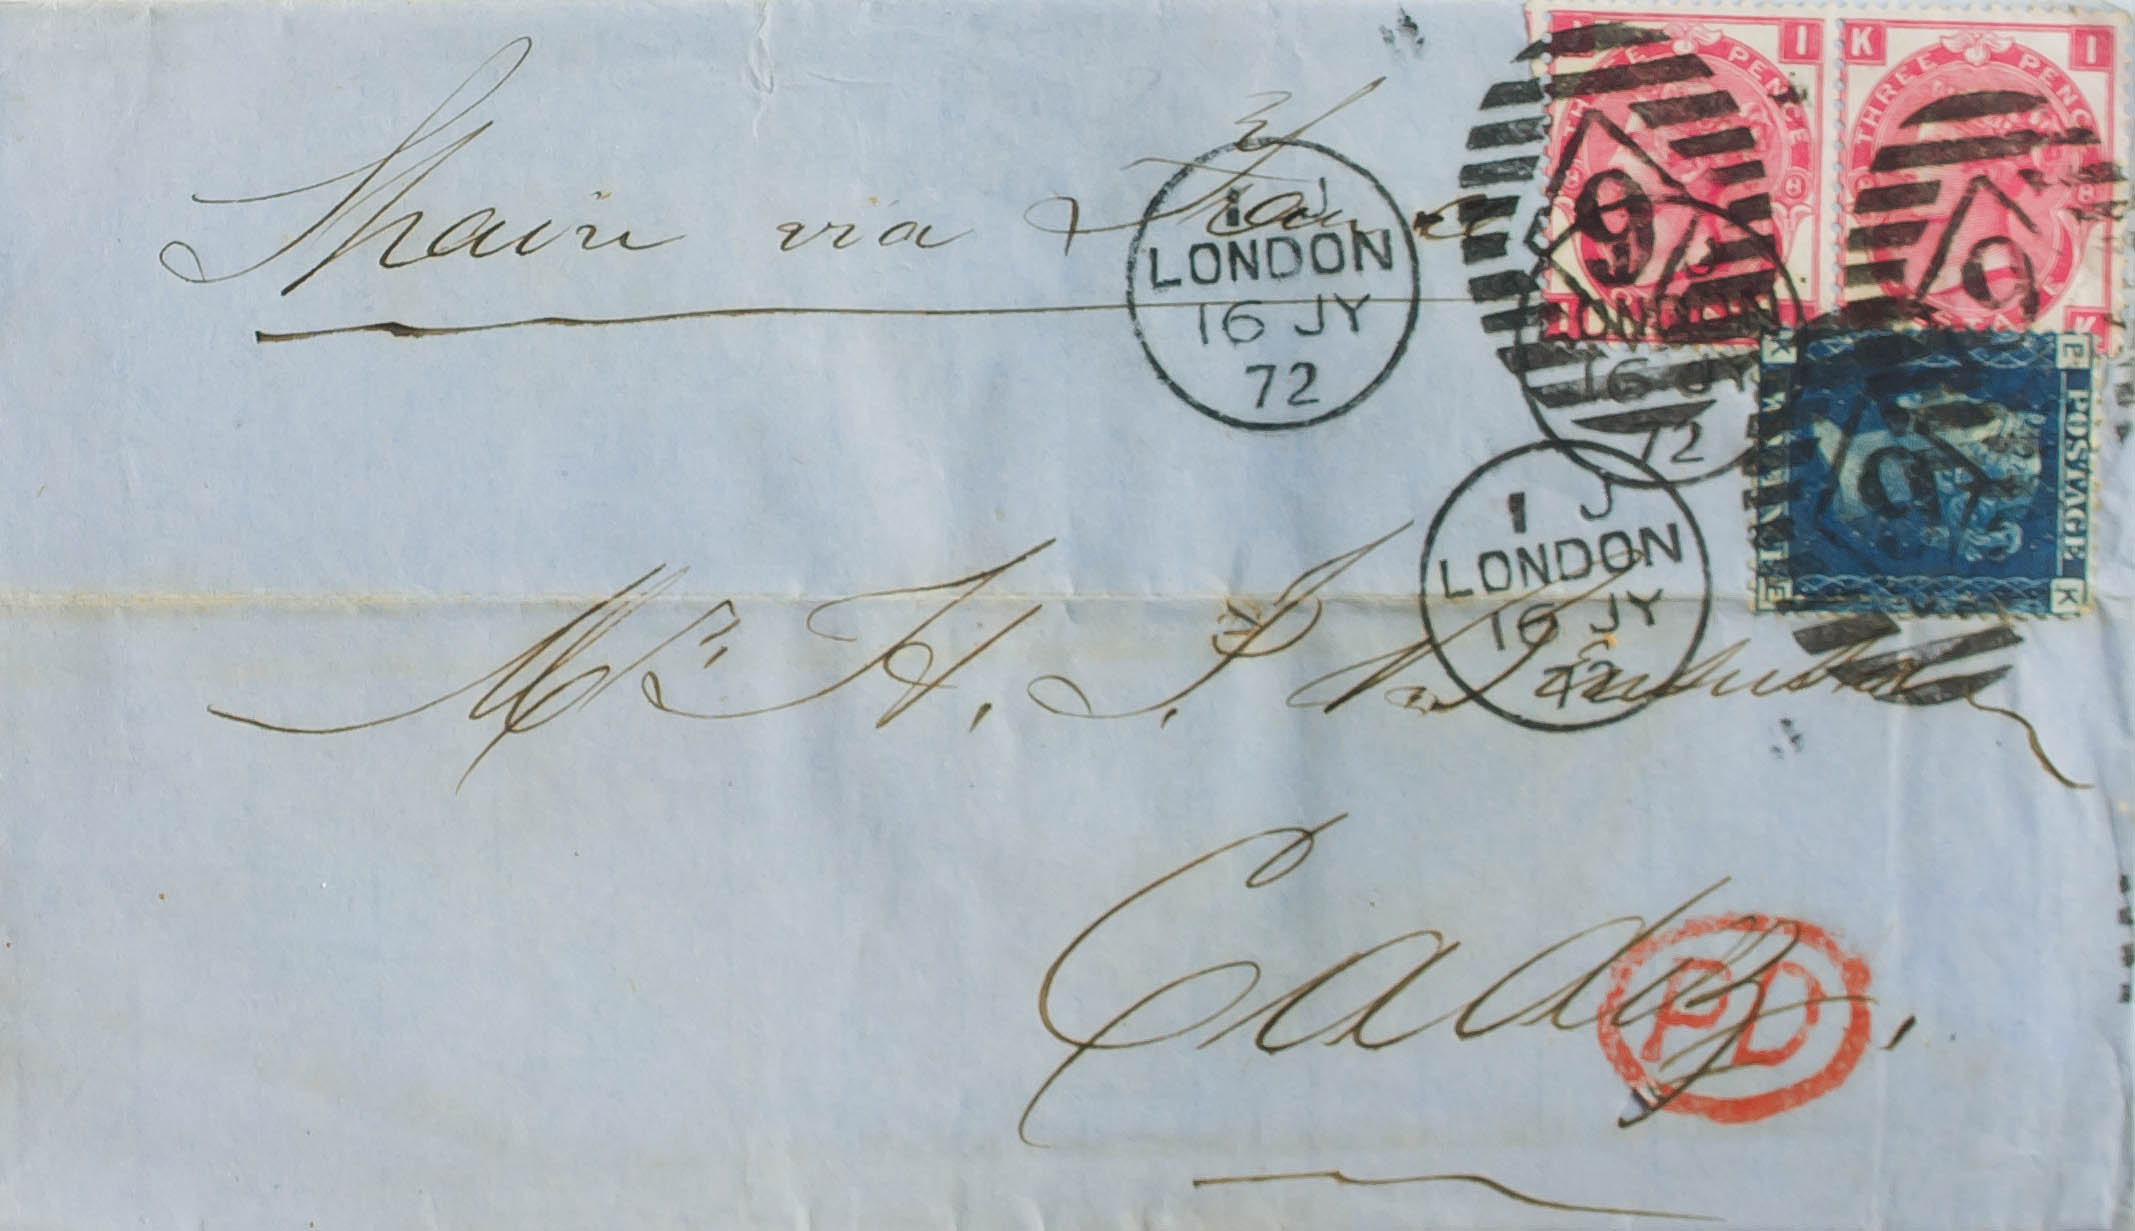 Spain via France
THREE PENCE
I
K THREE PENCE I
K
9
9
1 J
LONDON
16 JY
72
J
LONDON
16 JY
72
K P
POSTAGE
9
E K
1 J
LONDON
16 JY
72
Mr. H. J.
Cadiz.
PD